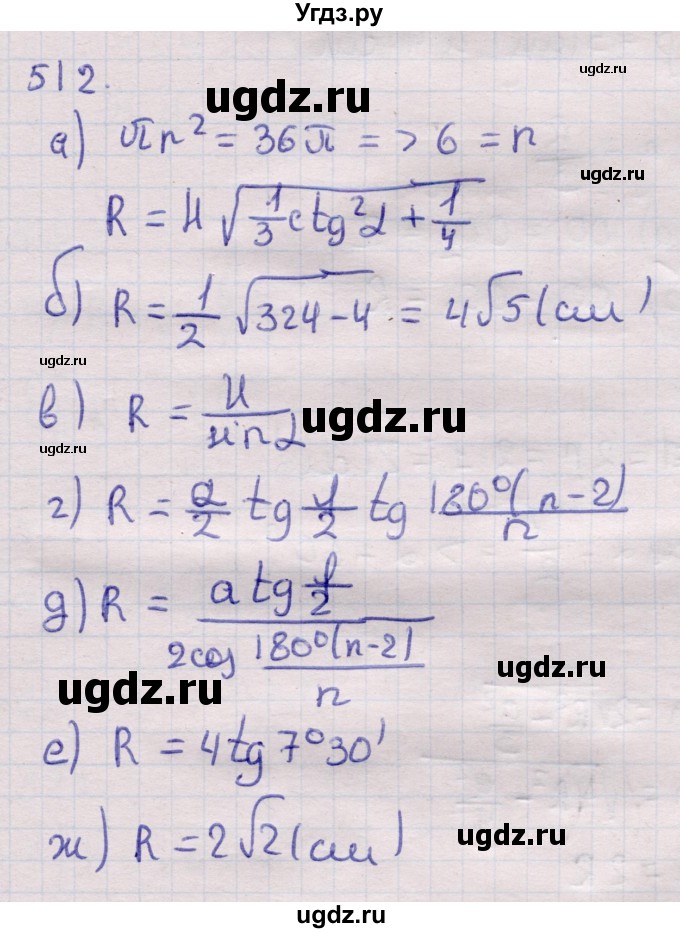 Угдз.ру
512.
ugdz.ru
ugdz.ru
а) πr² = 36π => 6 = r
ugdz.ru
R = H√(1/3 ctg²α + 1/4)
б) R = 1/2 √(324-4) = 4√5 (см)
ugdz.ru
в) R = H/sin α
ugdz.ru
ugdz.ru
г) R = a/2 tg φ/2 tg 180°(n-2)/n
д) R = a tg φ/2 / 2cos 180°(n-2)/n
ugdz.ru
ugdz.ru
е) R = 4tg 7°30'
ж) R = 2√2 (см)
ugdz.ru
ugdz.ru